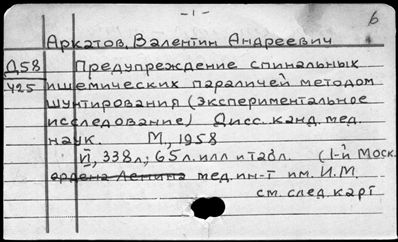 -1-
6
Аркатов, Валентин Андреевич
Д58
425
Предупреждение спинальных
ишемических параличей методом
шунтирования (экспериментальное
исследование) Дисс. канд. мед.
наук. М., 1958
II, 338л; 65л. илл и табл. (1-й Моск.
ордена Ленина мед. ин-т им. И.М.
см. след карт